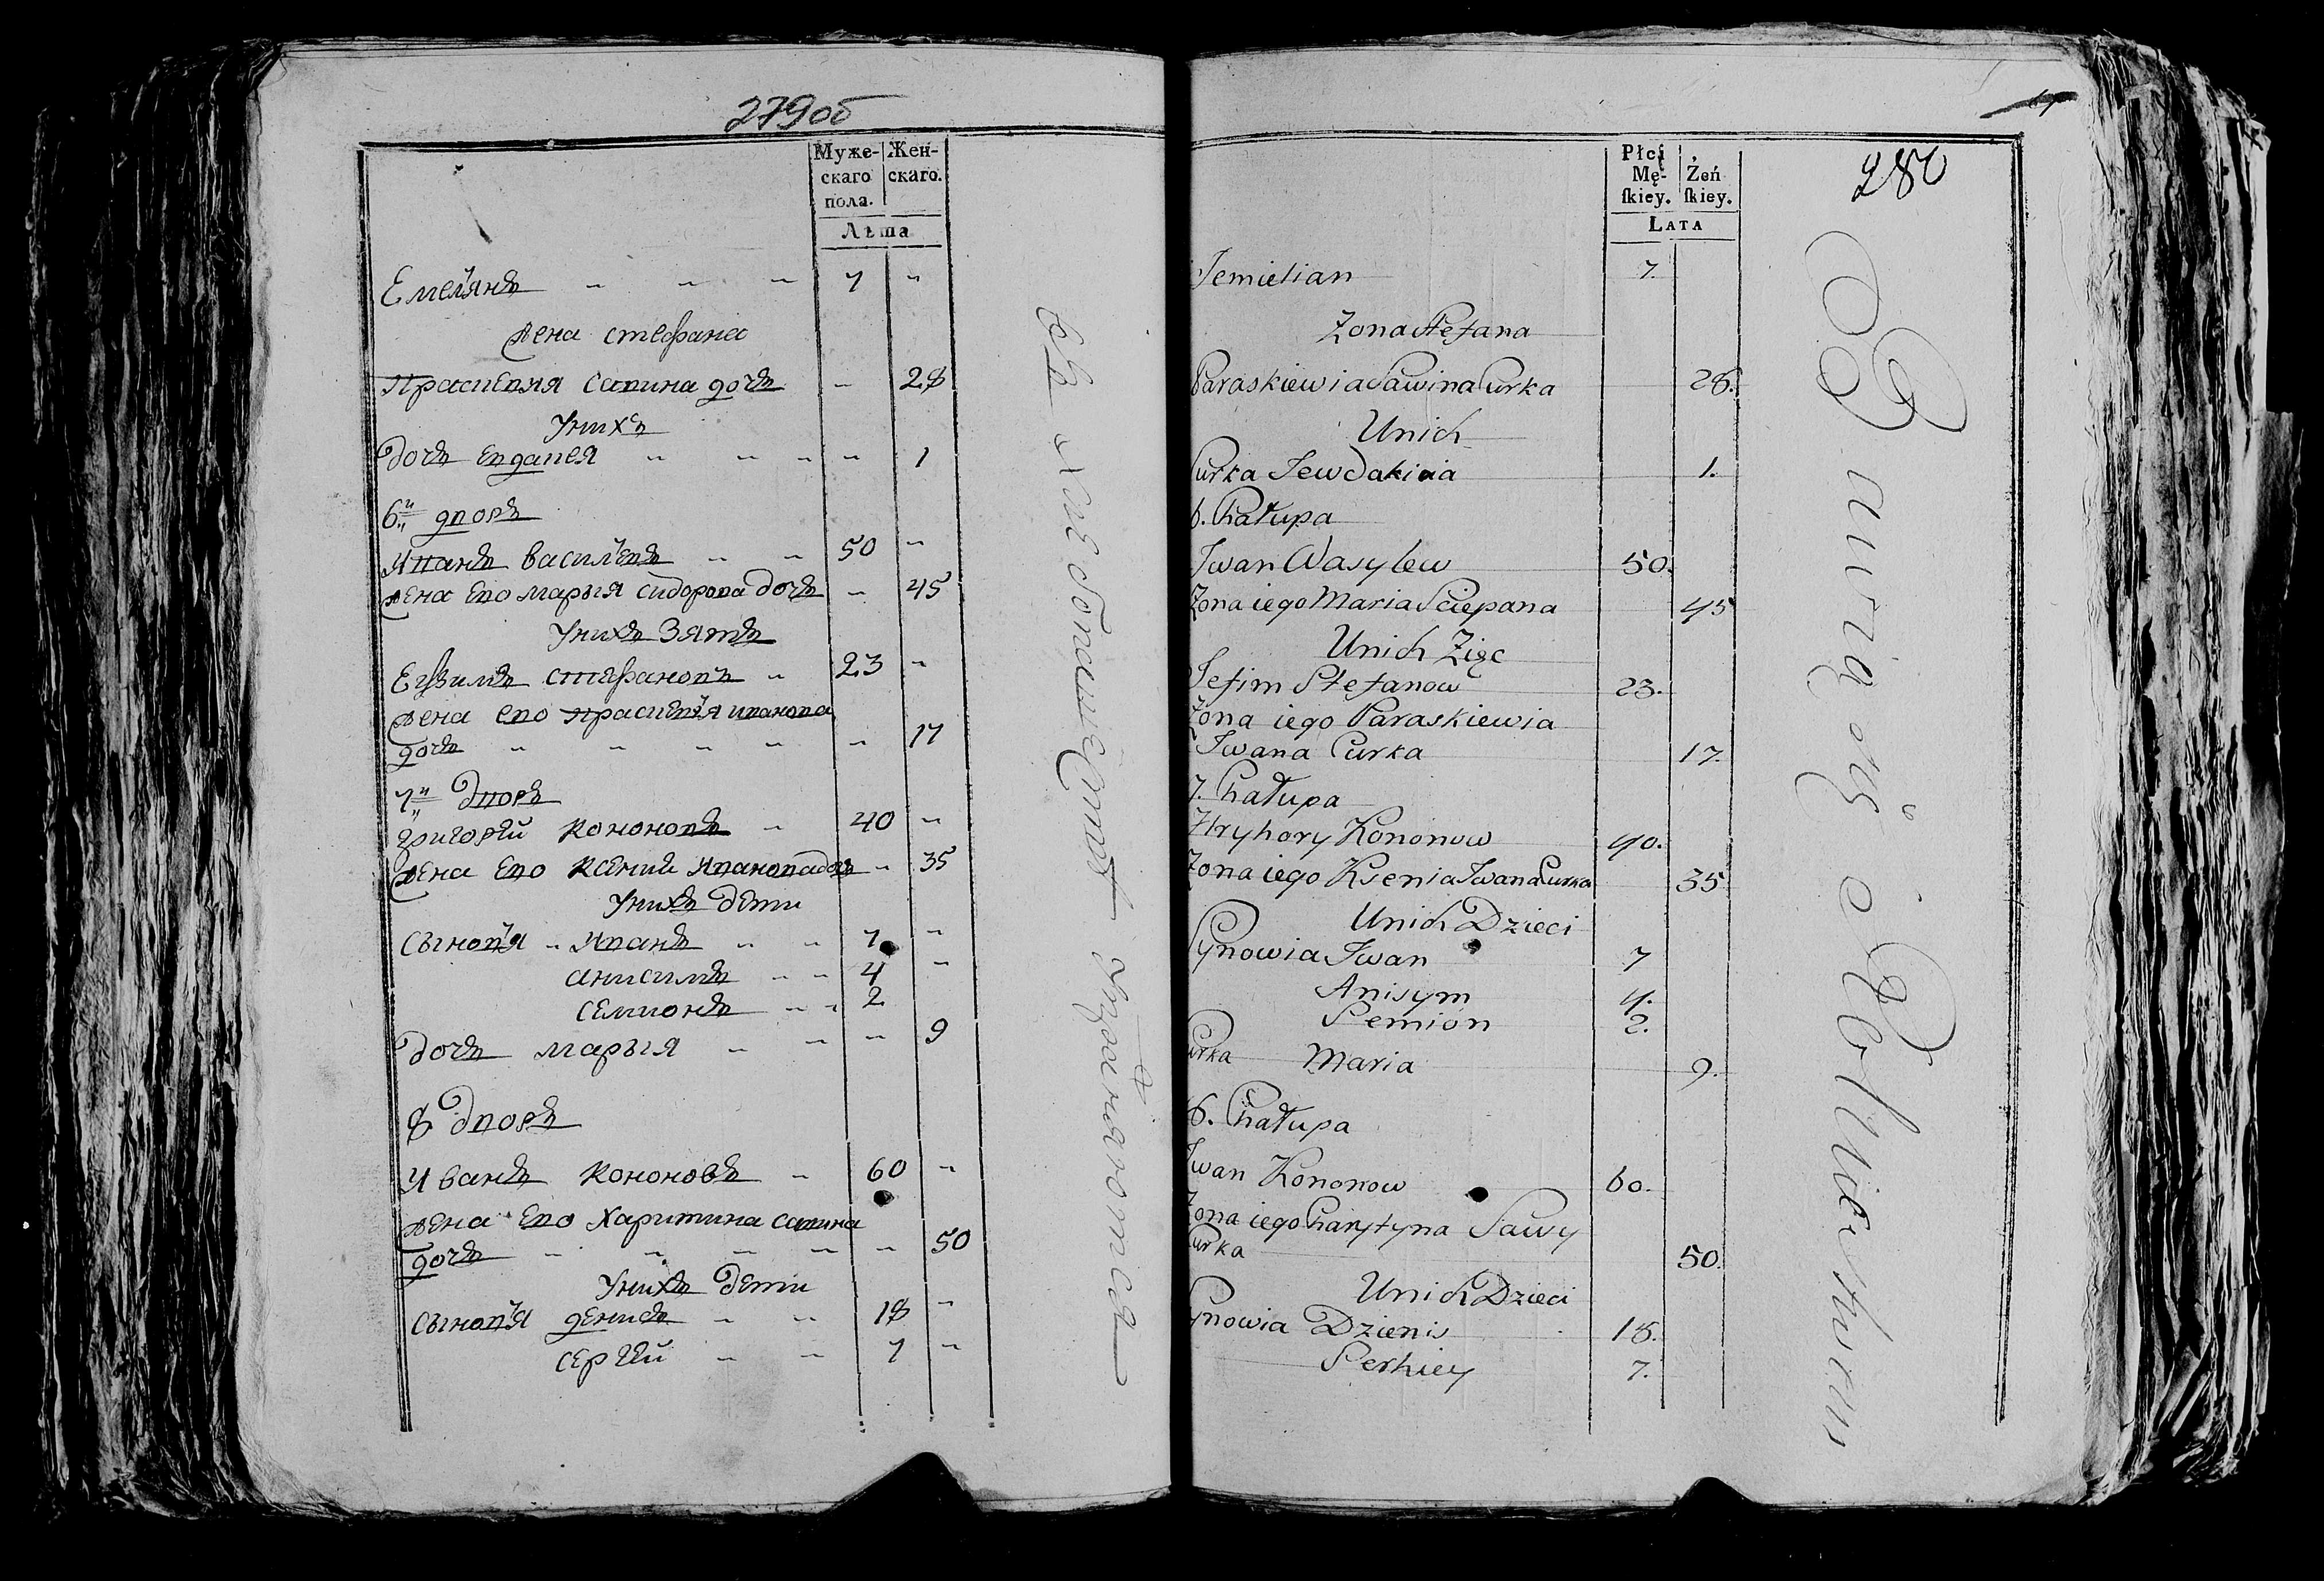 279об
Муже-скаго пола. Жен-скаго.
Лѣта
Емелянъ 7
жена стефана
Прасковя Савина дочь 28
Унихъ
дочь Евдакея 1
6й дворъ
Иванъ Василевъ 50
жена ево марыя сидорова дочь 45
Унихъ Зять
Ефимъ стефановъ 23
жена ево прасковя иванова
дочь 17
7й Дворъ
григорей Кононовъ 40
жена ево Ксения Иванова дочь 35
Унихъ дети
сыновя Иванъ 7
анисимъ 4
семионъ 2
дочь марыя 9
8 Дворъ
Иванъ Кононовъ 60
жена ево Харитина савина
дочь 50
Унихъ дети
сыновя денисъ 18
сергѣй 7
въ хлебопашествѣ упражняются
280
Płci Mę-ſkiey. Żeńſkiey.
LATA
Jemielian 7.
Zona Stefana
Paraskiewia Sawina Curka 28.
Unich
Curka Jewdakiia 1.
6. Chałupa
Jwan Wasylew 50.
Zona iego Maria Sciepana 45
Unich Zięc
Jefim Stefanow 23.
Zona iego Paraskiewia
Jwana Curka 17.
7. Chałupa
Hryhory Kononow 40.
Zona iego Ksenia Jwana Curka 35
Unich Dzieci
Synowia Jwan 7
Anisym 4.
Semión 2.
Curka Maria 9.
8. Chałupa
Jwan Kononow 60.
Zona iego Charytyna Sawy
Curka 50.
Unich Dzieci
Synowia Dzienis 18.
Serhiey 7.
Bawią się Rolnictwem